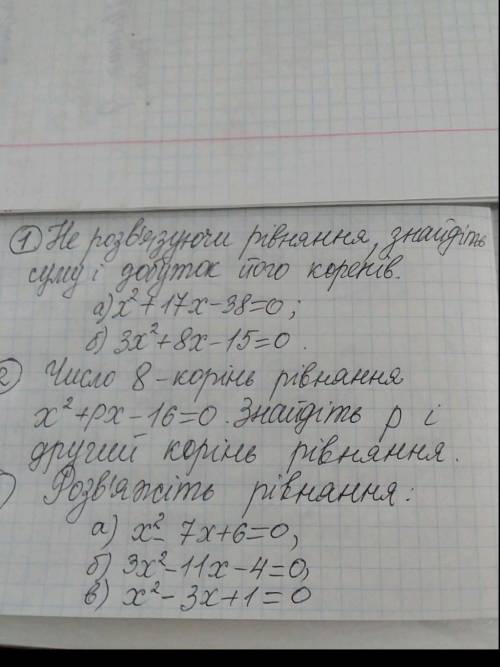 1 Не розв'язуючи рівняння, знайдіть
суму і добуток його коренів.
а) x²+17x-38=0;
б) 3x²+8x-15=0.
2 Число 8-корінь рівняння
x²+px-16=0. Знайдіть p і
другий корінь рівняння.
Розв'яжіть рівняння:
а) x²-7x+6=0,
б) 3x²-11x-4=0,
в) x²-3x+1=0